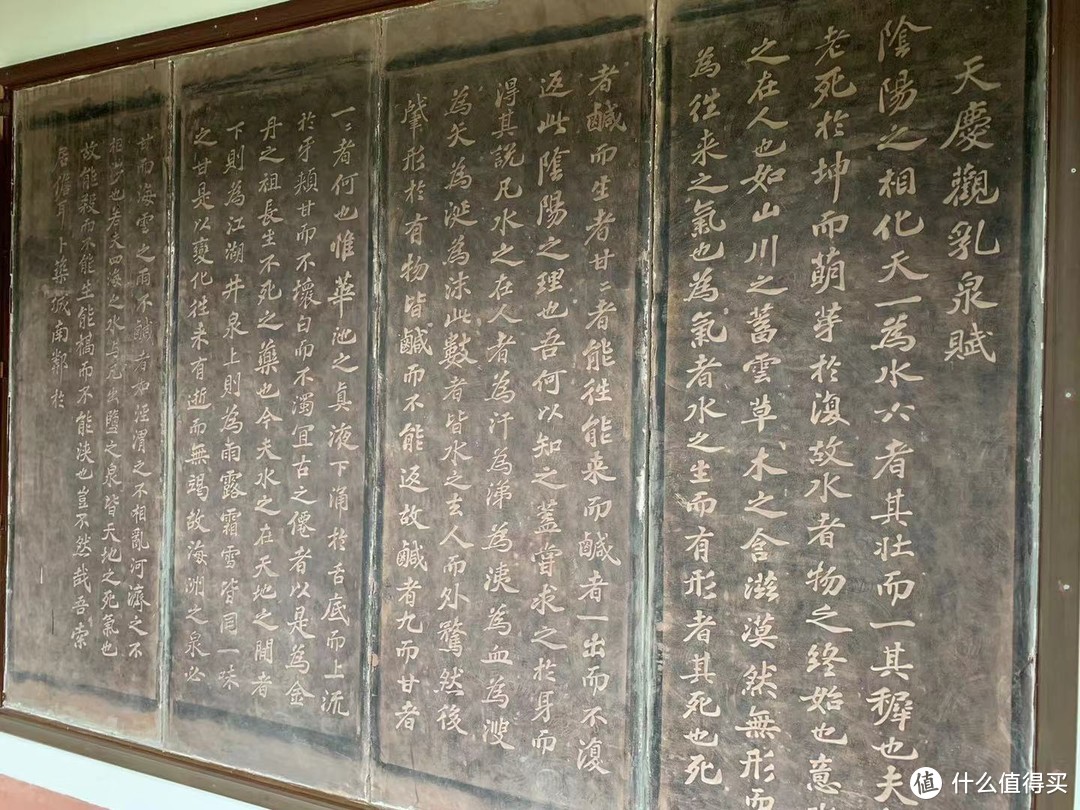 天慶觀乳泉賦
陰陽之相化天一為水六者其壯而一其穉也夫
老死於坤而萌芽於復故水者物之終始也意
之在人也如山川之蓄雲草木之含滋漠然無形而
為往来之氣也為氣者水之生而有形者其死也死
者鹹而生者甘〻者能往能来而鹹者一出而不復
返此陰陽之理也吾何以知之蓋嘗求之於身而
得其說凡水之在人者為汗為涕為洟為血為溲
為矢為涎為沫此數者皆水之去人而外騖然後
肇形於有物皆鹹而不能返故鹹者九而甘者
一〻者何也惟華池之真液下涌於舌底而上流
於牙頰甘而不壞白而不濁宜古之僊者以是為金
丹之祖長生不死之藥也今夫水之在天地之間者
下則為江湖井泉上則為雨露霜雪皆同一味
之甘是以變化往来有逝而無竭故海洲之泉必
甘而海雲之雨不鹹者如涇渭之不相亂河濟之不
相涉也若夫四海之水與凡出鹽之泉皆天地之死氣也
故能殺而不能生能槁而不能浹也豈不然哉吾索
居儋耳卜築城南鄰於
值 什么值得买